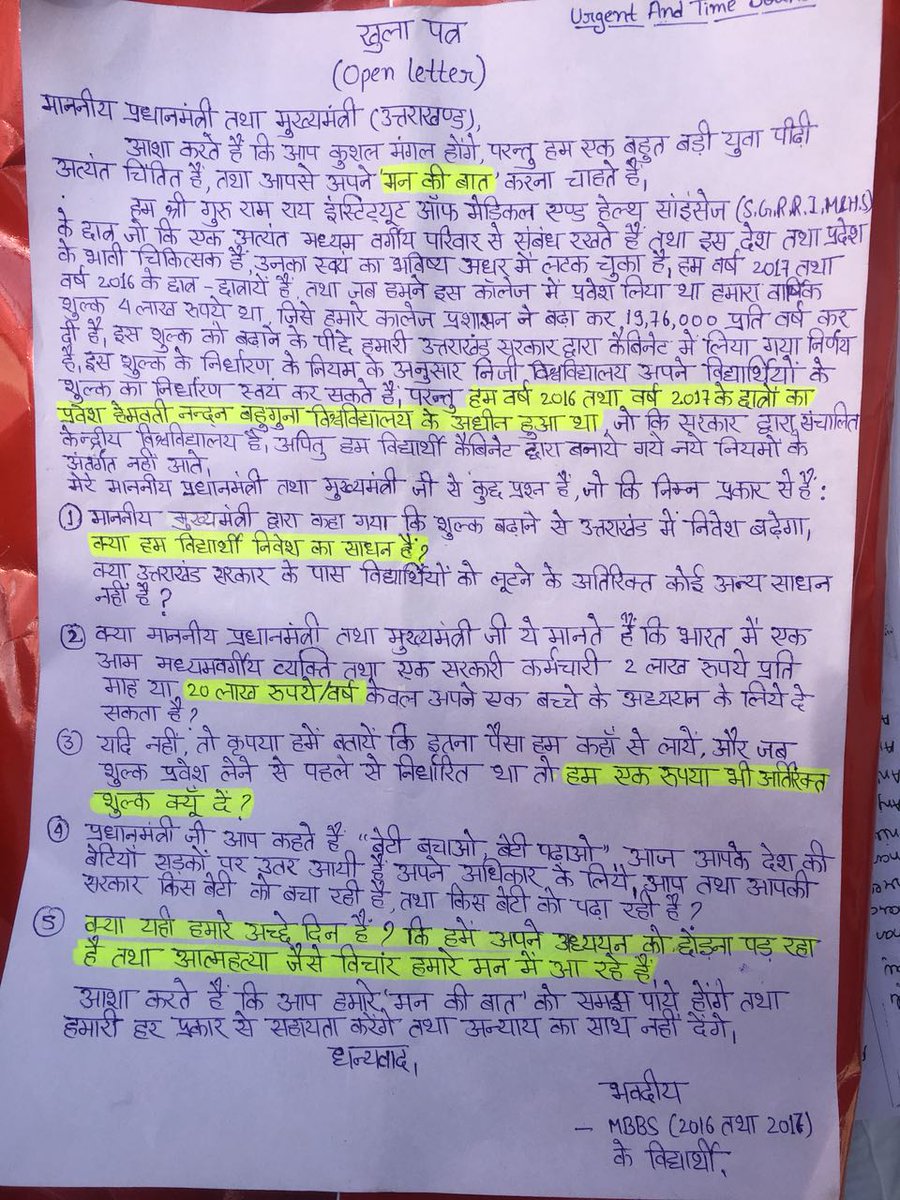 Urgent And Time
खुला पत्र
(Open letter)
माननीय प्रधानमंत्री तथा मुख्यमंत्री (उत्तराखण्ड),
आशा करते हैं कि आप कुशल मंगल होंगे, परन्तु हम एक बहुत बड़ी युवा पीढ़ी
अत्यंत चिंतित हैं, तथा आपसे अपने 'मन की बात' करना चाहते हैं,
हम श्री गुरु राम राय इंस्टिट्यूट ऑफ मेडिकल एण्ड हेल्थ साइंसेज (S.G.R.R.I.M.&H.S)
के छात्र जो कि एक अत्यंत मध्यम वर्गीय परिवार से संबंध रखते हैं तथा इस देश तथा प्रदेश
के भावी चिकित्सक हैं, उनका स्वयं का भविष्य अधर में लटक चुका है, हम वर्ष 2017 तथा
वर्ष 2016 के छात्र-छात्रायें हैं, तथा जब हमने इस कॉलेज में प्रवेश लिया था हमारा वार्षिक
शुल्क 4 लाख रुपये था, जिसे हमारे कालेज प्रशासन ने बढ़ा कर 19,76,000 प्रति वर्ष कर
दी है, इस शुल्क को बढ़ाने के पीछे हमारी उत्तराखंड सरकार द्वारा कैबिनेट में लिया गया निर्णय
है, इस शुल्क के निर्धारण के नियम के अनुसार निजी विश्वविद्यालय अपने विद्यार्थियों के
शुल्क का निर्धारण स्वयं कर सकते हैं, परन्तु हम वर्ष 2016 तथा वर्ष 2017 के छात्रों का
प्रवेश हेमवती नन्दन बहुगुना विश्वविद्यालय के अधीन हुआ था, जो कि सरकार द्वारा संचालित
केन्द्रीय विश्वविद्यालय है, अपितु हम विद्यार्थी कैबिनेट द्वारा बनाये गये नये नियमों के
अंतर्गत नहीं आते,
मेरे माननीय प्रधानमंत्री तथा मुख्यमंत्री जी से कुछ प्रश्न हैं, जो कि निम्न प्रकार से हैं :
① माननीय मुख्यमंत्री द्वारा कहा गया कि शुल्क बढ़ाने से उत्तराखंड में निवेश बढ़ेगा,
क्या हम विद्यार्थी निवेश का साधन हैं?
क्या उत्तराखंड सरकार के पास विद्यार्थियों को लूटने के अतिरिक्त कोई अन्य साधन
नहीं है?
② क्या माननीय प्रधानमंत्री तथा मुख्यमंत्री जी ये मानते हैं कि भारत में एक
आम मध्यमवर्गीय व्यक्ति तथा एक सरकारी कर्मचारी 2 लाख रुपये प्रति
माह या 20 लाख रुपये/वर्ष केवल अपने एक बच्चे के अध्ययन के लिये दे
सकता है?
③ यदि नहीं, तो कृपया हमें बतायें कि इतना पैसा हम कहाँ से लायें, और जब
शुल्क प्रवेश लेने से पहले से निर्धारित था तो हम एक रुपया भी अतिरिक्त
शुल्क क्यूँ दें?
④ प्रधानमंत्री जी आप कहते हैं "बेटी बचाओ, बेटी पढ़ाओ" आज आपके देश की
बेटियाँ सड़कों पर उतर आयी हैं अपने अधिकार के लिये, आप तथा आपकी
सरकार किस बेटी को बचा रही है, तथा किस बेटी को पढ़ा रही है?
⑤ क्या यही हमारे अच्छे दिन हैं? कि हमें अपने अध्ययन को छोड़ना पड़ रहा
है तथा आत्महत्या जैसे विचार हमारे मन में आ रहे हैं
आशा करते हैं कि आप हमारे 'मन की बात' को समझ पाये होंगे तथा
हमारी हर प्रकार से सहायता करेंगे तथा अन्याय का साथ नहीं देंगे,
धन्यवाद,
भवदीय
- MBBS (2016 तथा 2017)
के विद्यार्थी,